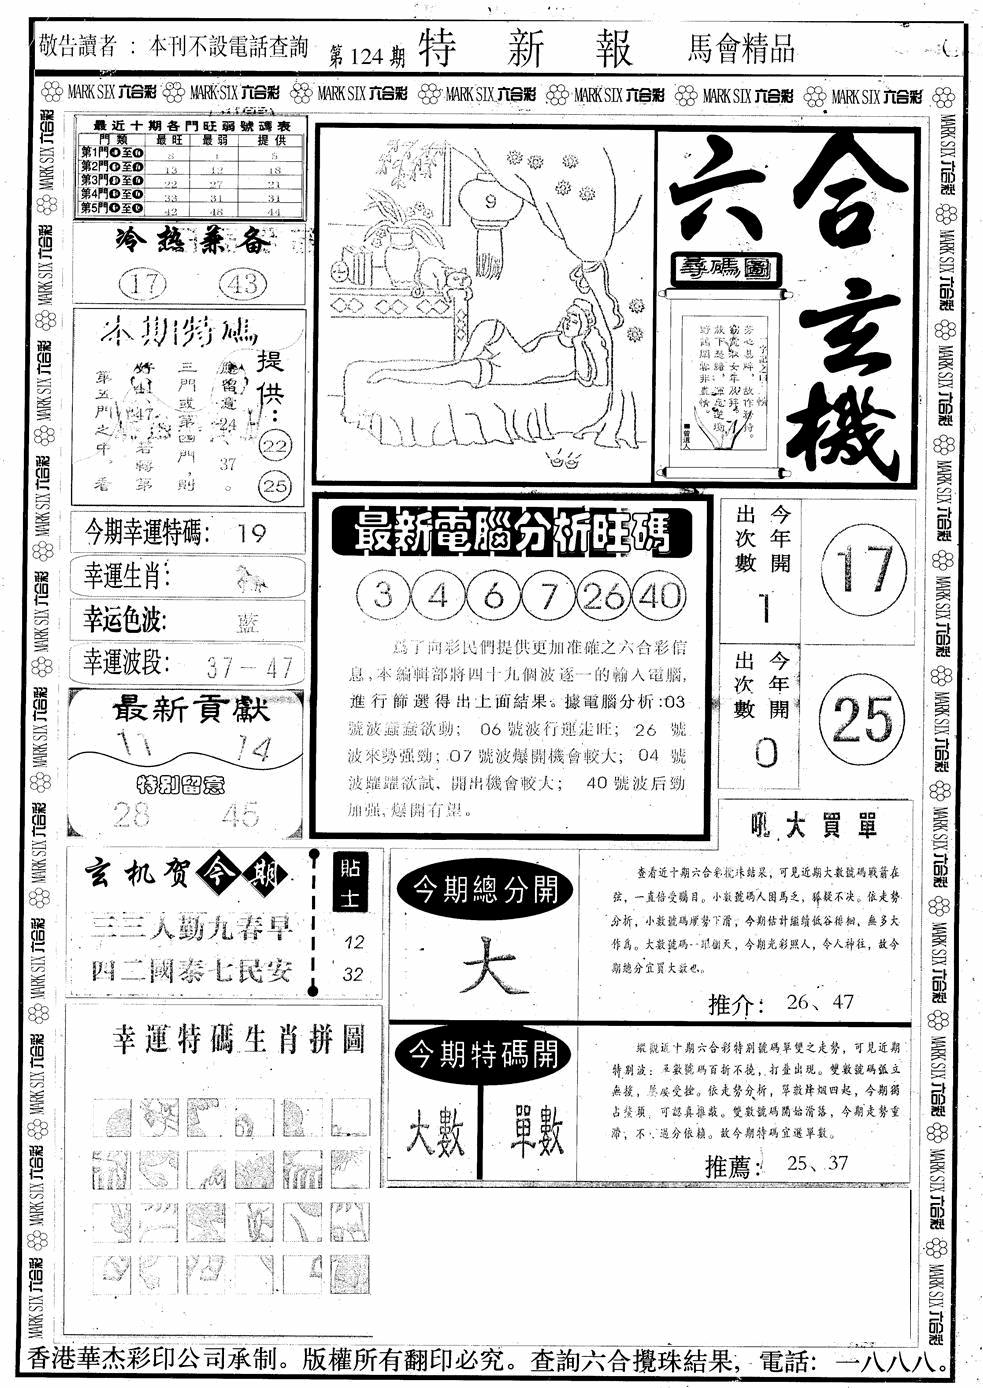 敬告讀者 : 本刊不設電話查詢
第124期
特新報
馬會精品
MARK SIX 六合彩 MARK SIX 六合彩 MARK SIX 六合彩 MARK SIX 六合彩 MARK SIX 六合彩 MARK SIX 六合彩 MARK SIX 六合彩
最近十期各門旺弱號碼表
門類 最旺 最弱 提供
第1門 至 8 1 5
第2門 至 13 12 18
第3門 至 22 27 21
第4門 至 33 31 31
第5門 至 42 48 44
冷热兼备
17 43
本期特碼
提供:
22
25
應留意24、37。
三門或第四門,則
第五門之中。看
今期幸運特碼: 19
幸運生肖:
幸运色波: 藍
幸運波段: 37-47
最新貢獻
11 14
特别留意
28 45
9
六合玄機
尋碼圖
曾道人
最新電腦分析旺碼
3 4 6 7 26 40
爲了向彩民們提供更加准確之六合彩信
息,本編輯部將四十九個波逐一的輸入電腦,
進行篩選得出上面結果。據電腦分析:03
號波蠢蠢欲動; 06號波行運走旺; 26 號
波來勢强勁; 07 號波爆開機會較大; 04 號
波躍躍欲試、開出機會較大; 40 號波后勁
加强,爆開有望。
今年開
出次數
1
17
今年開
出次數
0
25
玄机贺今期
三三人勤九春早
四二國泰七民安
貼士
12
32
幸運特碼生肖拼圖
吼大買單
今期總分開
大
查看近十期六合彩攪珠結果,可見近期大數號碼戰箭在
弦,一直倍受矚目。小數號碼人困馬乏,狐疑不決。依走勢
分析,小數號碼頹勢下滑,今期估計繼續低谷徘徊,無多大
作爲。大數號碼一躍衝天,今期光彩照人,令人神往,故今
期總分宜買大數也。
推介: 26、47
今期特碼開
大數 單數
縱觀近十期六合彩特別號碼單雙之走勢,可見近期
特別波:單數號碼百折不撓,打疊出現。雙數號碼孤立
無援,屢屢受挫。依走勢分析,單數烽烟四起,今期獨
占鰲頭,可認真推敲。雙數號碼開始滑落,今期走勢重
滯,不 過分依賴。故今期特碼宜選單數。
推薦: 25、37
香港華杰彩印公司承制。版權所有翻印必究。查詢六合攪珠結果,電話:一八八八。